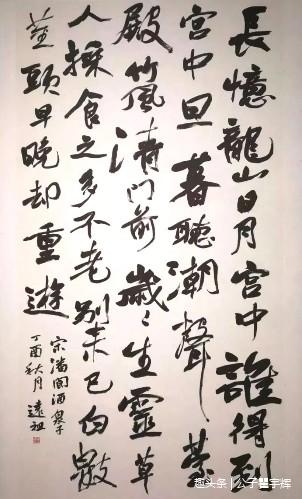 長憶龍山日月宮中誰得到
宮中旦暮聽潮聲臺
殿竹風清門前歲々生靈草
人採食之多不老別来已白數
莖頭早晚却重遊
宋潘閬酒泉子
丁酉秋月 遠祖
趣头条 | 公子瞿宇辉